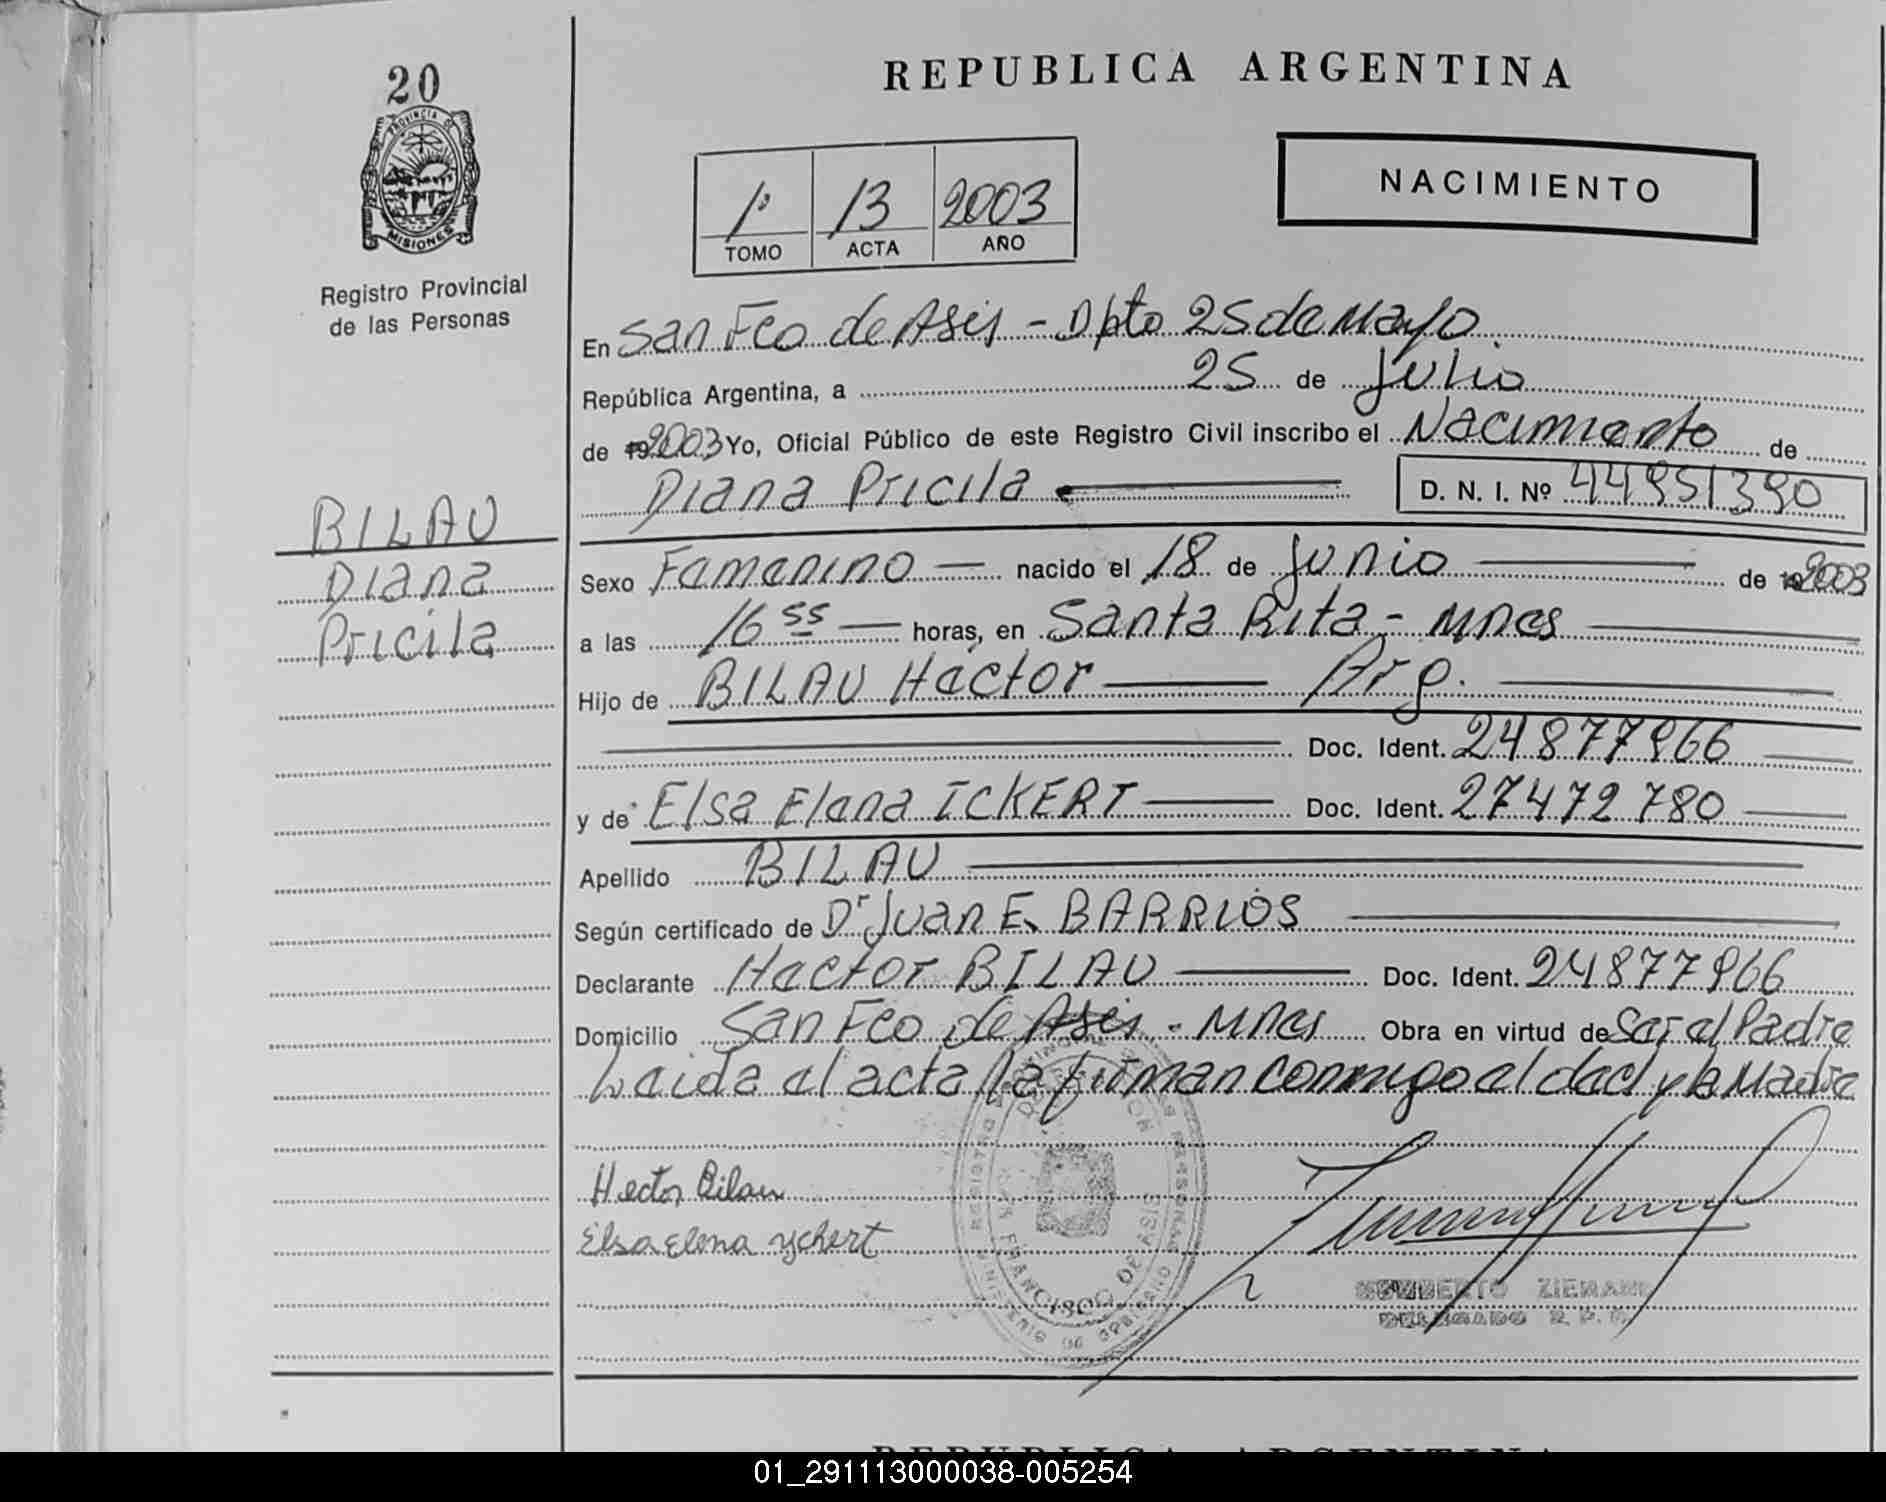 20
PROVINCIA DE
MISIONES
Registro Provincial
de las Personas
BILAU
Diana
Pricila
REPUBLICA ARGENTINA
1º 13 2003
TOMO ACTA AÑO
NACIMIENTO
En San Fco de Asis - Dpto 25 de Mayo
República Argentina, a 25 de Julio
de 192003 Yo, Oficial Público de este Registro Civil inscribo el Nacimiento de
Diana Pricila D. N. I. Nº 44951390
Sexo Femenino nacido el 18 de Junio de 192003
a las 16 55 horas, en Santa Rita - Mnes
Hijo de BILAU Hector Arg.
Doc. Ident. 24877966
y de Elsa Elena ICKERT Doc. Ident. 27472780
Apellido BILAU
Según certificado de Dr Juan E. BARRIOS
Declarante Hector BILAU Doc. Ident. 24877966
Domicilio San Fco de Asis - Mnes Obra en virtud de Ser el Padre
Leida el acta la firman conmigo el decl y la Madre
Hector Bilau
Elsa Elena Ychert
SAN FRANCISCO DE ASIS
MINISTERIO DE GOBIERNO
HUMBERTO ZIEMANN
DELEGADO R. P. P.
REPUBLICA ARGENTINA
01_291113000038-005254